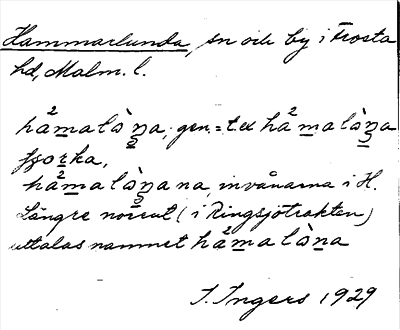 Hammarlunda, sn och by i Frosta
hd, Malm. l.
hȧ²malȯ̀ṉa; gen. = t ex hȧ²malȯ̀ṉa
ɟorka,
hȧ²malȯ̀ṉana, invånarna i H.
Längre norrut (i Ringsjötrakten)
uttalas namnet hȧ²malȯ̀na
I. Ingers 1929